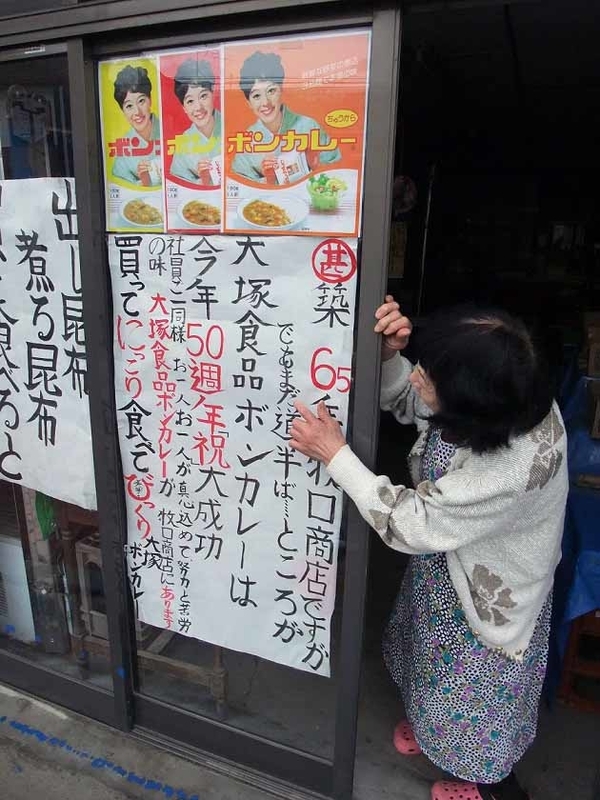 ボン
ボン
ボンカレー
ちゅうから
築65年 牧口商店ですが
でもまだ道半ば……ところが
大塚食品ボンカレーは
今年50週年「祝」大成功
社員ご一同様 お一人お一人が真心込めて努力と苦労
の味 大塚食品ボンカレーが 牧口商店にあります
買ってにっこり食べてびっくり大塚ボンカレー
出し昆布
煮る昆布
食べると